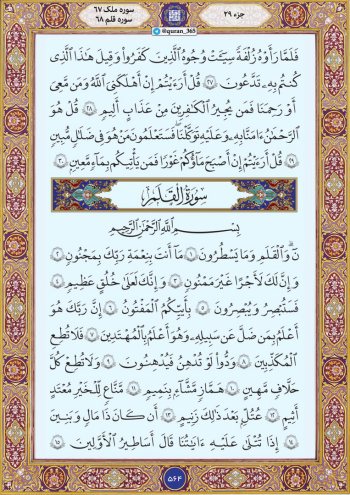 سوره ملک ۶۷
سوره قلم ۶۸
@quran_365
جزء ۲۹
فَلَمَّا رَأَوْهُ زُلْفَةً سِيٓـَٔتْ وُجُوهُ ٱلَّذِينَ كَفَرُوا۟ وَقِيلَ هَٰذَا ٱلَّذِى
كُنتُم بِهِۦ تَدَّعُونَ ۝٢٧ قُلْ أَرَءَيْتُمْ إِنْ أَهْلَكَنِىَ ٱللَّهُ وَمَن مَّعِىَ
أَوْ رَحِمَنَا فَمَن يُجِيرُ ٱلْكَٰفِرِينَ مِنْ عَذَابٍ أَلِيمٍ ۝٢٨ قُلْ هُوَ
ٱلرَّحْمَٰنُ ءَامَنَّا بِهِۦ وَعَلَيْهِ تَوَكَّلْنَا ۖ فَسَتَعْلَمُونَ مَنْ هُوَ فِى ضَلَٰلٍ مُّبِينٍ
۝٢٩ قُلْ أَرَءَيْتُمْ إِنْ أَصْبَحَ مَآؤُكُمْ غَوْرًا فَمَن يَأْتِيكُم بِمَآءٍ مَّعِينٍۭ ۝٣٠
سُورَةُ ٱلْقَلَمِ
بِسْمِ ٱللَّهِ ٱلرَّحْمَٰنِ ٱلرَّحِيمِ
نٓ ۚ وَٱلْقَلَمِ وَمَا يَسْطُرُونَ ۝١ مَآ أَنتَ بِنِعْمَةِ رَبِّكَ بِمَجْنُونٍ ۝٢
وَإِنَّ لَكَ لَأَجْرًا غَيْرَ مَمْنُونٍ ۝٣ وَإِنَّكَ لَعَلَىٰ خُلُقٍ عَظِيمٍ ۝٤
فَسَتُبْصِرُ وَيُبْصِرُونَ ۝٥ بِأَييِّكُمُ ٱلْمَفْتُونُ ۝٦ إِنَّ رَبَّكَ هُوَ
أَعْلَمُ بِمَن ضَلَّ عَن سَبِيلِهِۦ وَهُوَ أَعْلَمُ بِٱلْمُهْتَدِينَ ۝٧ فَلَا تُطِعِ
ٱلْمُكَذِّبِينَ ۝٨ وَدُّوا۟ لَوْ تُدْهِنُ فَيُدْهِنُونَ ۝٩ وَلَا تُطِعْ كُلَّ
حَلَّافٍ مَّهِينٍ ۝١٠ هَمَّازٍ مَّشَّآءٍۭ بِنَمِيمٍ ۝١١ مَّنَّاعٍ لِّلْخَيْرِ مُعْتَدٍ
أَثِيمٍ ۝١٢ عُتُلٍّۭ بَعْدَ ذَٰلِكَ زَنِيمٍ ۝١٣ أَن كَانَ ذَا مَالٍ وَبَنِينَ
۝١٤ إِذَا تُتْلَىٰ عَلَيْهِ ءَايَٰتُنَا قَالَ أَسَٰطِيرُ ٱلْأَوَّلِينَ ۝١٥
۵۶۴